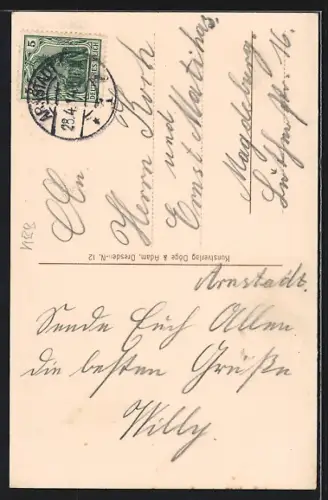 5
DEUTSCHES REICH
ARNSTADT
28.4.
An
Herrn Koch
und
Ernst Mathias
Magdeburg
16.
Kunstverlag Döge & Adam, Dresden-N. 12
Arnstadt.
Sende Euch Allen
die besten Grüße
Willy.